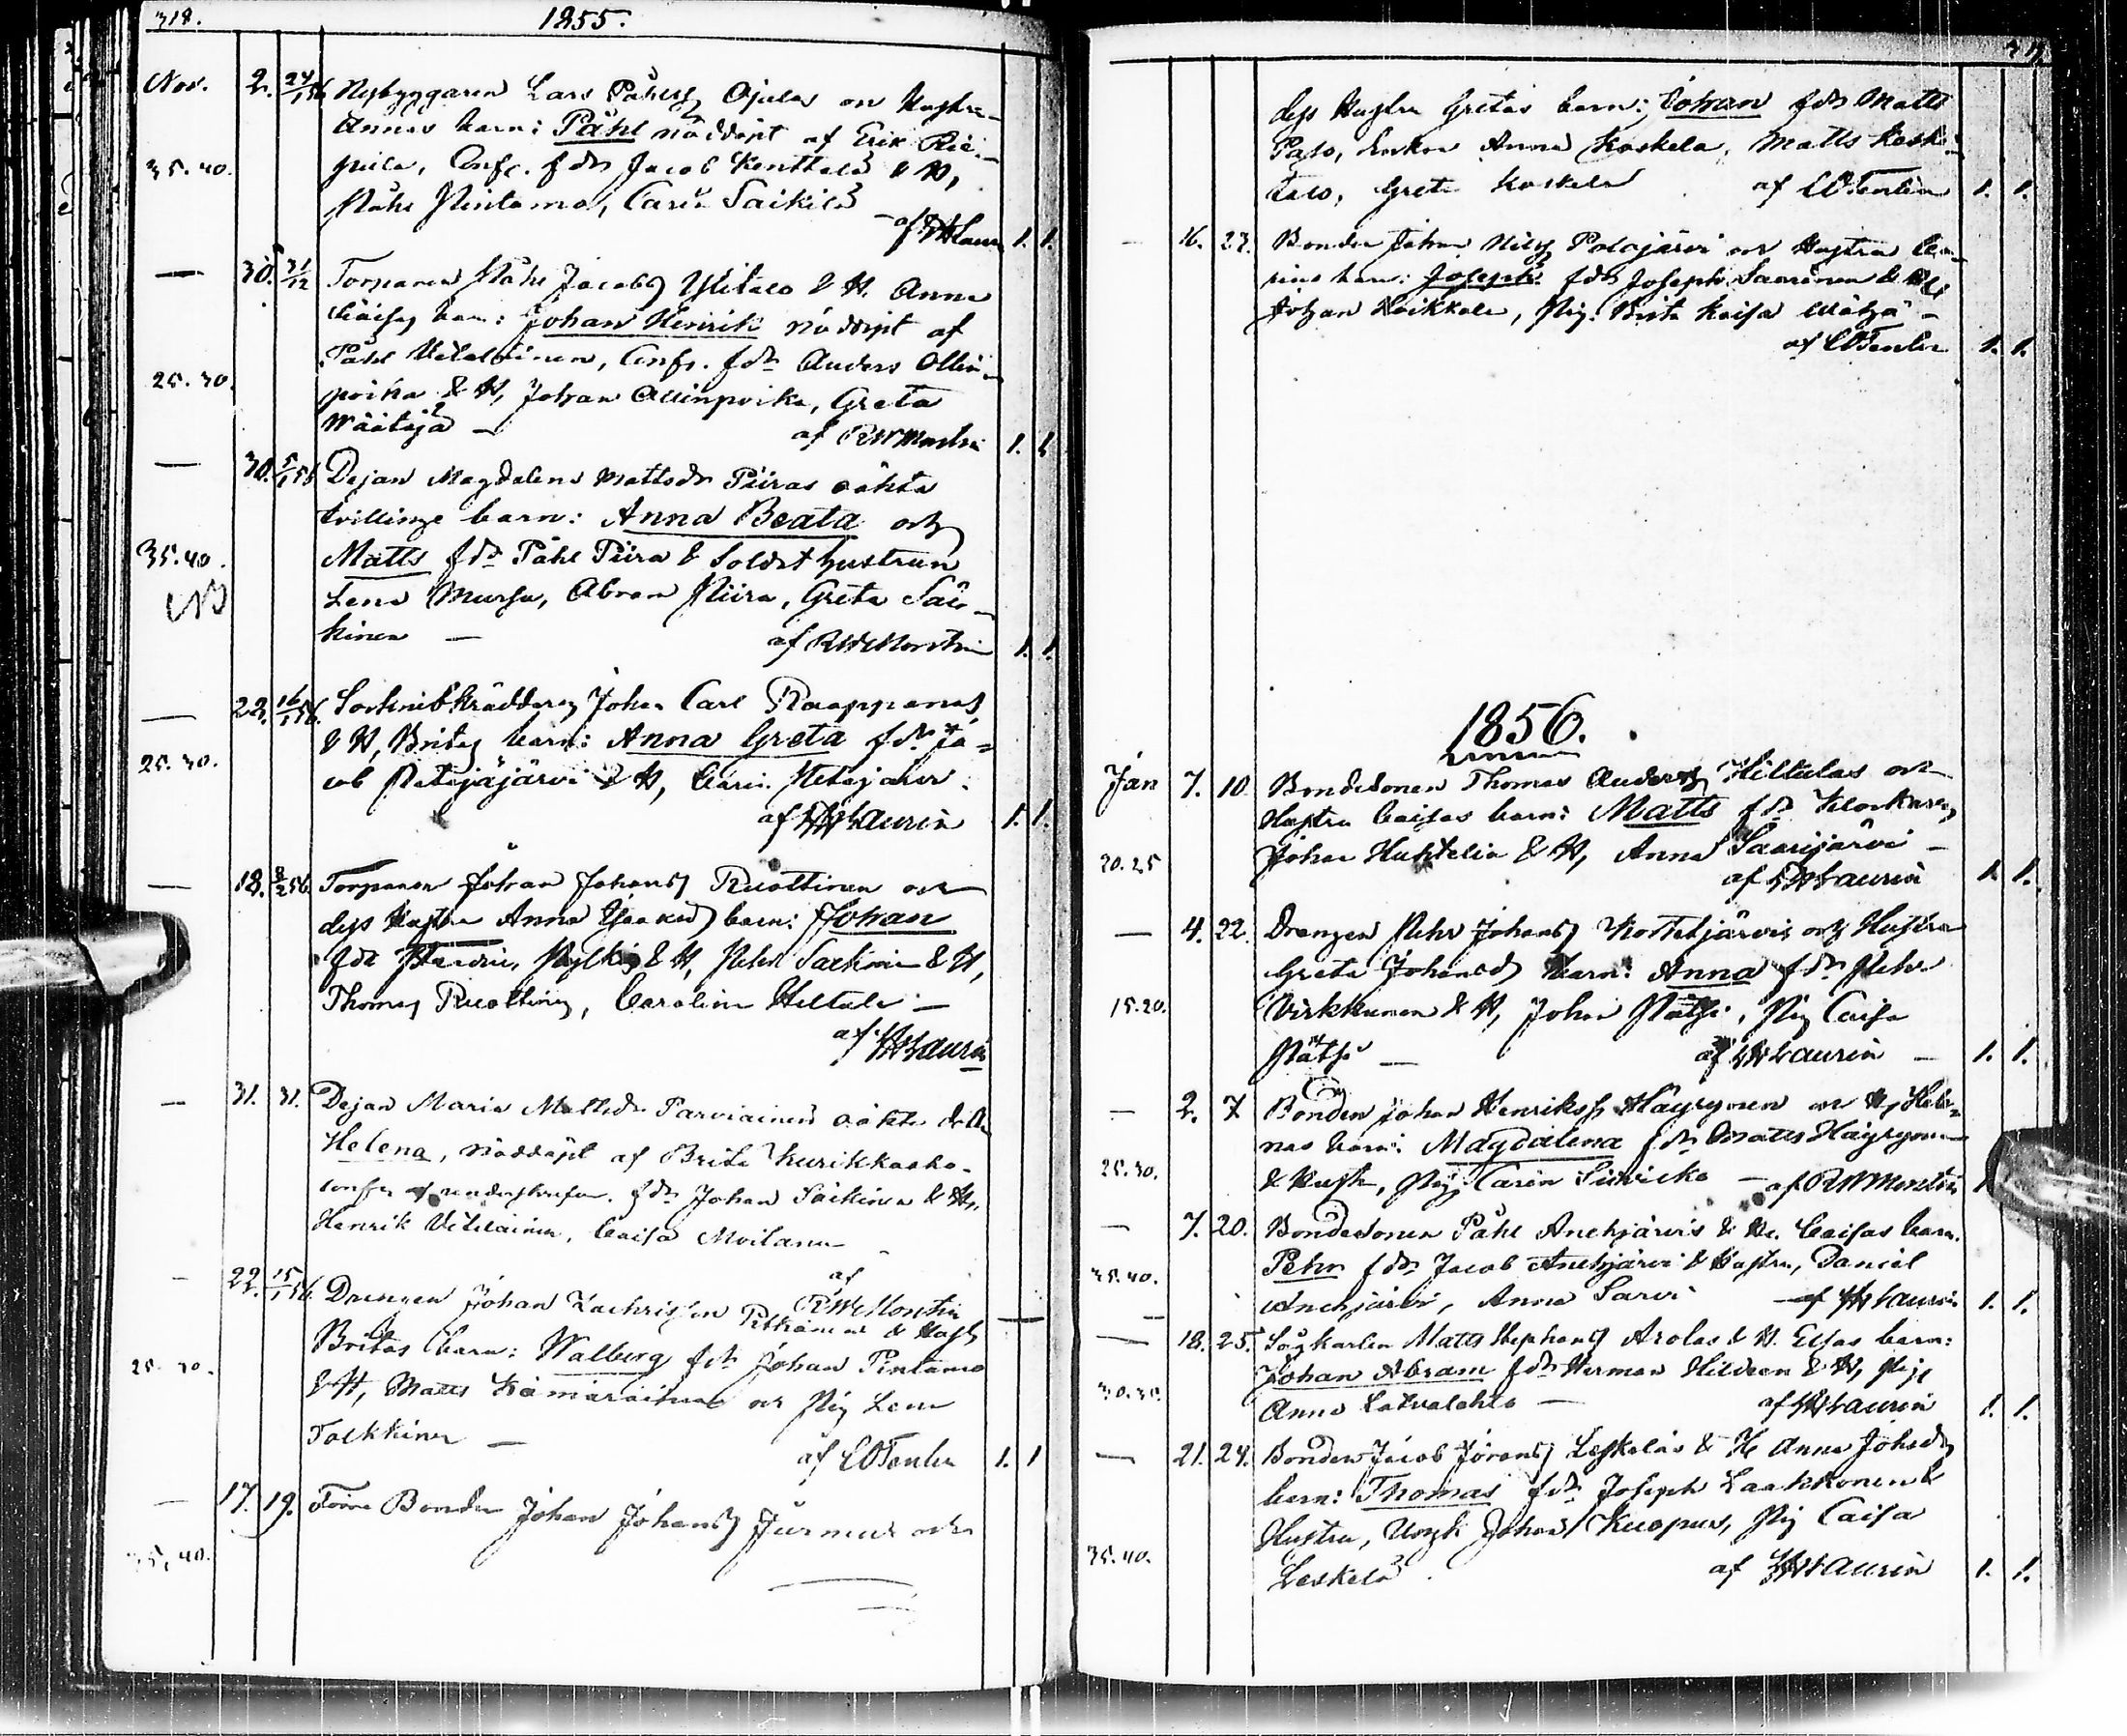 318.
1855.
Nov. 2. 24/1 56 Nybyggaren Lars Påhls Ojalas och Hustru
Annas barn: Påhl nöddöpt af Erik
35.40. Conf. fdr Jacob Kenttälä & H,
Påhl Pintamo, Carin Saikila
af
1. 1.
— 30. 31/12 Torparen Påhl Jacobs Ylitalo & H. Anna
Caisas barn: Johan Henrik nöddöpt af
Påhl Väteläinen, Confr. fdr Anders Ollin-
25.30. poika & H, Johan Ollinpoika, Greta
Määttäjä — af RWMontin 1. 1.
— 30. 5/1 56 Dejan Magdalena Mattsdr Piiras oäkta
tvillinge barn: Anna Beata och
35.40. Matts fdr Påhl Piira & Soldat hustrun
NB Lena Mursu, Abram Piira, Greta Säk-
kinen — af RWMontin 1. 1.
— 22. 16/1 56. Sockneskräddaren Johan Carl Raappanas
& H, Britas barn: Anna Greta fdr Ja=
25.30. cob Petäjäjärvi & H, Carin Petäjäjärvi.
af HHLaurin 1. 1.
— 18. 8/2 56 Torparen Johan Johans Ruottinen och
dess Hustru Anna Isaksd barn: Johan
fdr & H, Pehr Säkkinen & H,
Thomas Ruottinen, Carolina Hiltula —
af HHLaurin
— 31. 31. Dejan Maria Mattsdr Parviainens oäkta dotter
Helena, nöddöpt af Brita Kurikkaaho.
confr af undertecknad. fdr Johan Säkkinen & H,
Henrik Väteläinen, Caisa Moilanen —
af
RWMontin
— 22. 15/1 56. Drengen Johan Zachrisson Pitkänens & Hust
Britas barn: Walborg fdr Johan Pintamo
25.30. & H, Matts Kämäräinen och Pig Lena
Tolkkinen — af COTenlen 1. 1
— 17. 19. Torp Bonden Johan Johans Jurmus och
35,40.
dess Hustru Gretas barn: Johan fdr Matts
Palo, Enkan Anna Koskela, Matts Keski-
talo, Greta Koskela af COTenlen 1. 1.
— 16. 23. Bonden Johan Nils Polojärvi och Hustru
barn: Joseph fdr Joseph Saarinen & H
Johan Heikkala, Pig. Brita Kaisa Määttä —
af COTenlen 1. 1.
1856.
Jan 7. 10. Bondesonen Thomas Anders Hiltulas och
Hustru Caisas barn: Matts fdr Klockaren
20.25 Johan Huhtelin & H, Anna Saarijärvi —
af HHLaurin 1. 1.
— 4. 22. Drengen Pehr Johans Kostetjärvis och Hustru
Greta Johansd barn: Anna fdr Pehr
15.20. Virkkunen & H, Johan Pätsi, Pig Caisa
Pätsi — af HHLaurin — 1. 1.
— 2. 7 Bonden Johan Henriks Häyrynen och H, Hele-
nas barn: Magdalena fdr Matts Häyrynen
25.30. & Hustr, Pig Carin — af RWMontin
— 7. 20. Bondesonen Påhl Anehjärvis & H. Caisas barn.
35.40. Pehr fdr Jacob Anehjärvi & Hustru, Daniel
Anehjärvi, Anna Sarvi — af HHLaurin 1. 1.
— 18. 25. Sågkarlen Matts Stephans Arolas & H. Elsas barn:
30.35. Johan Abram fdr Herman Hildeen & H, Pig
Anna Latvalehto — af HHLaurin 1. 1.
— 21. 24. Bonden Jacob Jörans Leskeläs & H Anna Johsdr
barn: Thomas fdr Joseph Laakkonen &
Hustru, Ungk Johan Kuopus, Pig Caisa
35.40. Leskelä. af HHLaurin 1. 1.